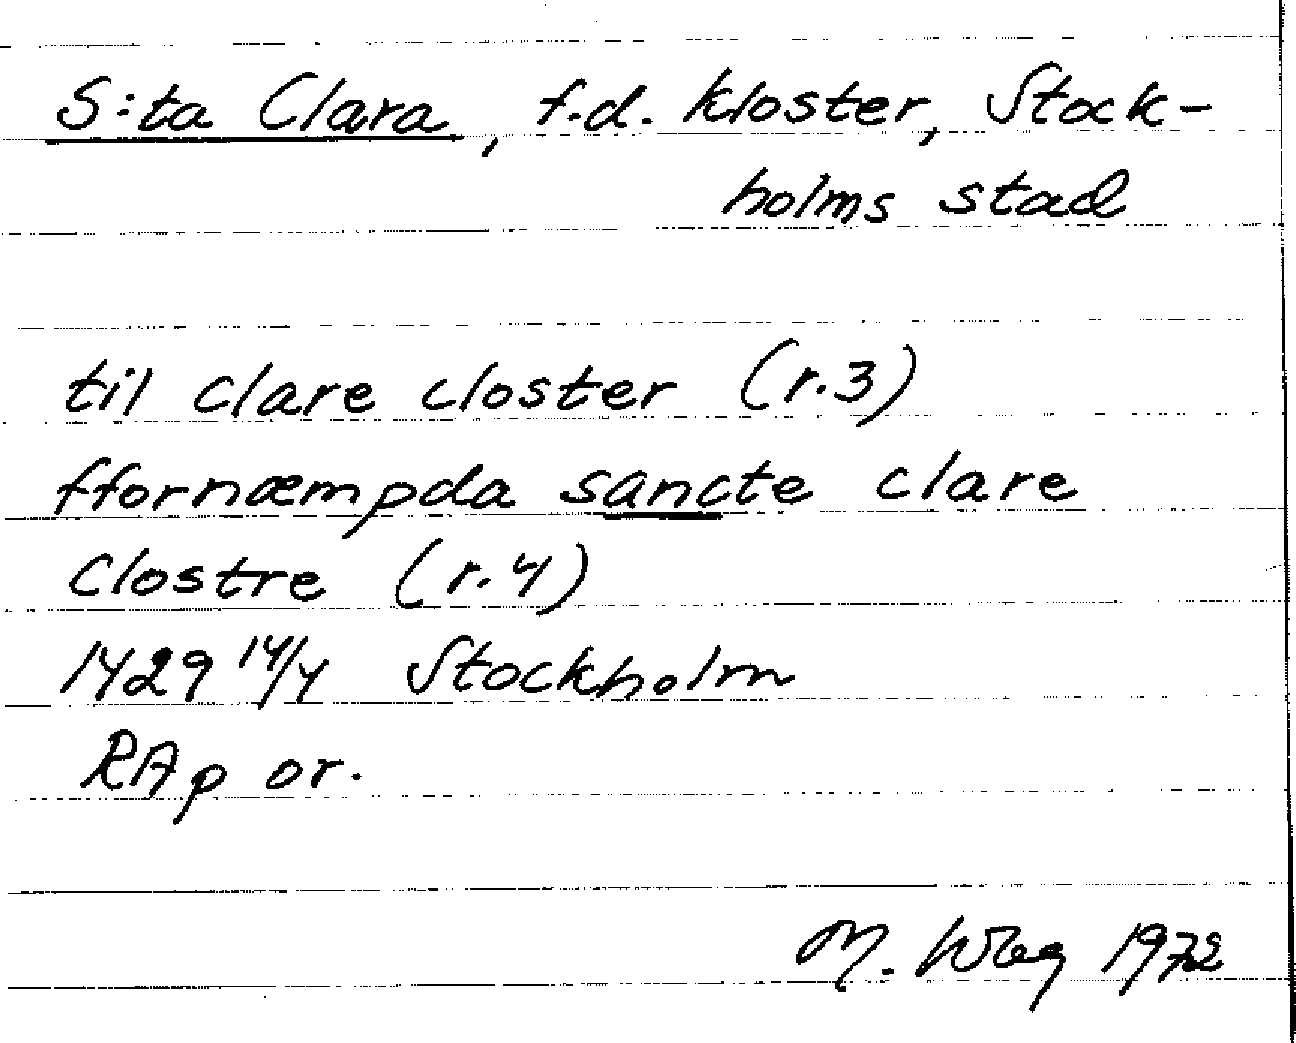 S:ta Clara, f.d. kloster, Stock-
holms stad
til clare closter (r.3)
ffornæmpda sancte clare
Clostre (r.4)
1429 14/4 Stockholm
RAp or.
M. 1972